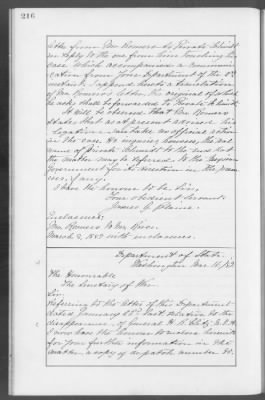 216
letter from Mr. Romero to Private
in reply to the one from him touching the
case which accompanied a communi-
cation from your Department of the
instant. I append hereto a translation
of Mr. Romero's letter, the original of which
he asks shall be forwarded to Private
It will be observed that Mr. Romero
states that as at present advised his
Legation can take no official action
in the case. He enquires however, the real
name of Private to the end that
the matter may be referred to the Mexican
Government for its direction in the premi-
ses, if any.
I have the honour to be, Sir,
Your obedient servant,
James G. Blaine.
Enclosures:
Mr. Romero to Mr.
March 2, 188 with enclosures.
Department of State,
Washington, Mar. 16/
The Honorable
The Secretary of War.
Sir:
Referring to the letter of this Department
dated January last relative to the
disappearance of General H. B. U.S.A.
I now have the honour to enclose herewith
for your further information in the
matter, a copy of despatch number